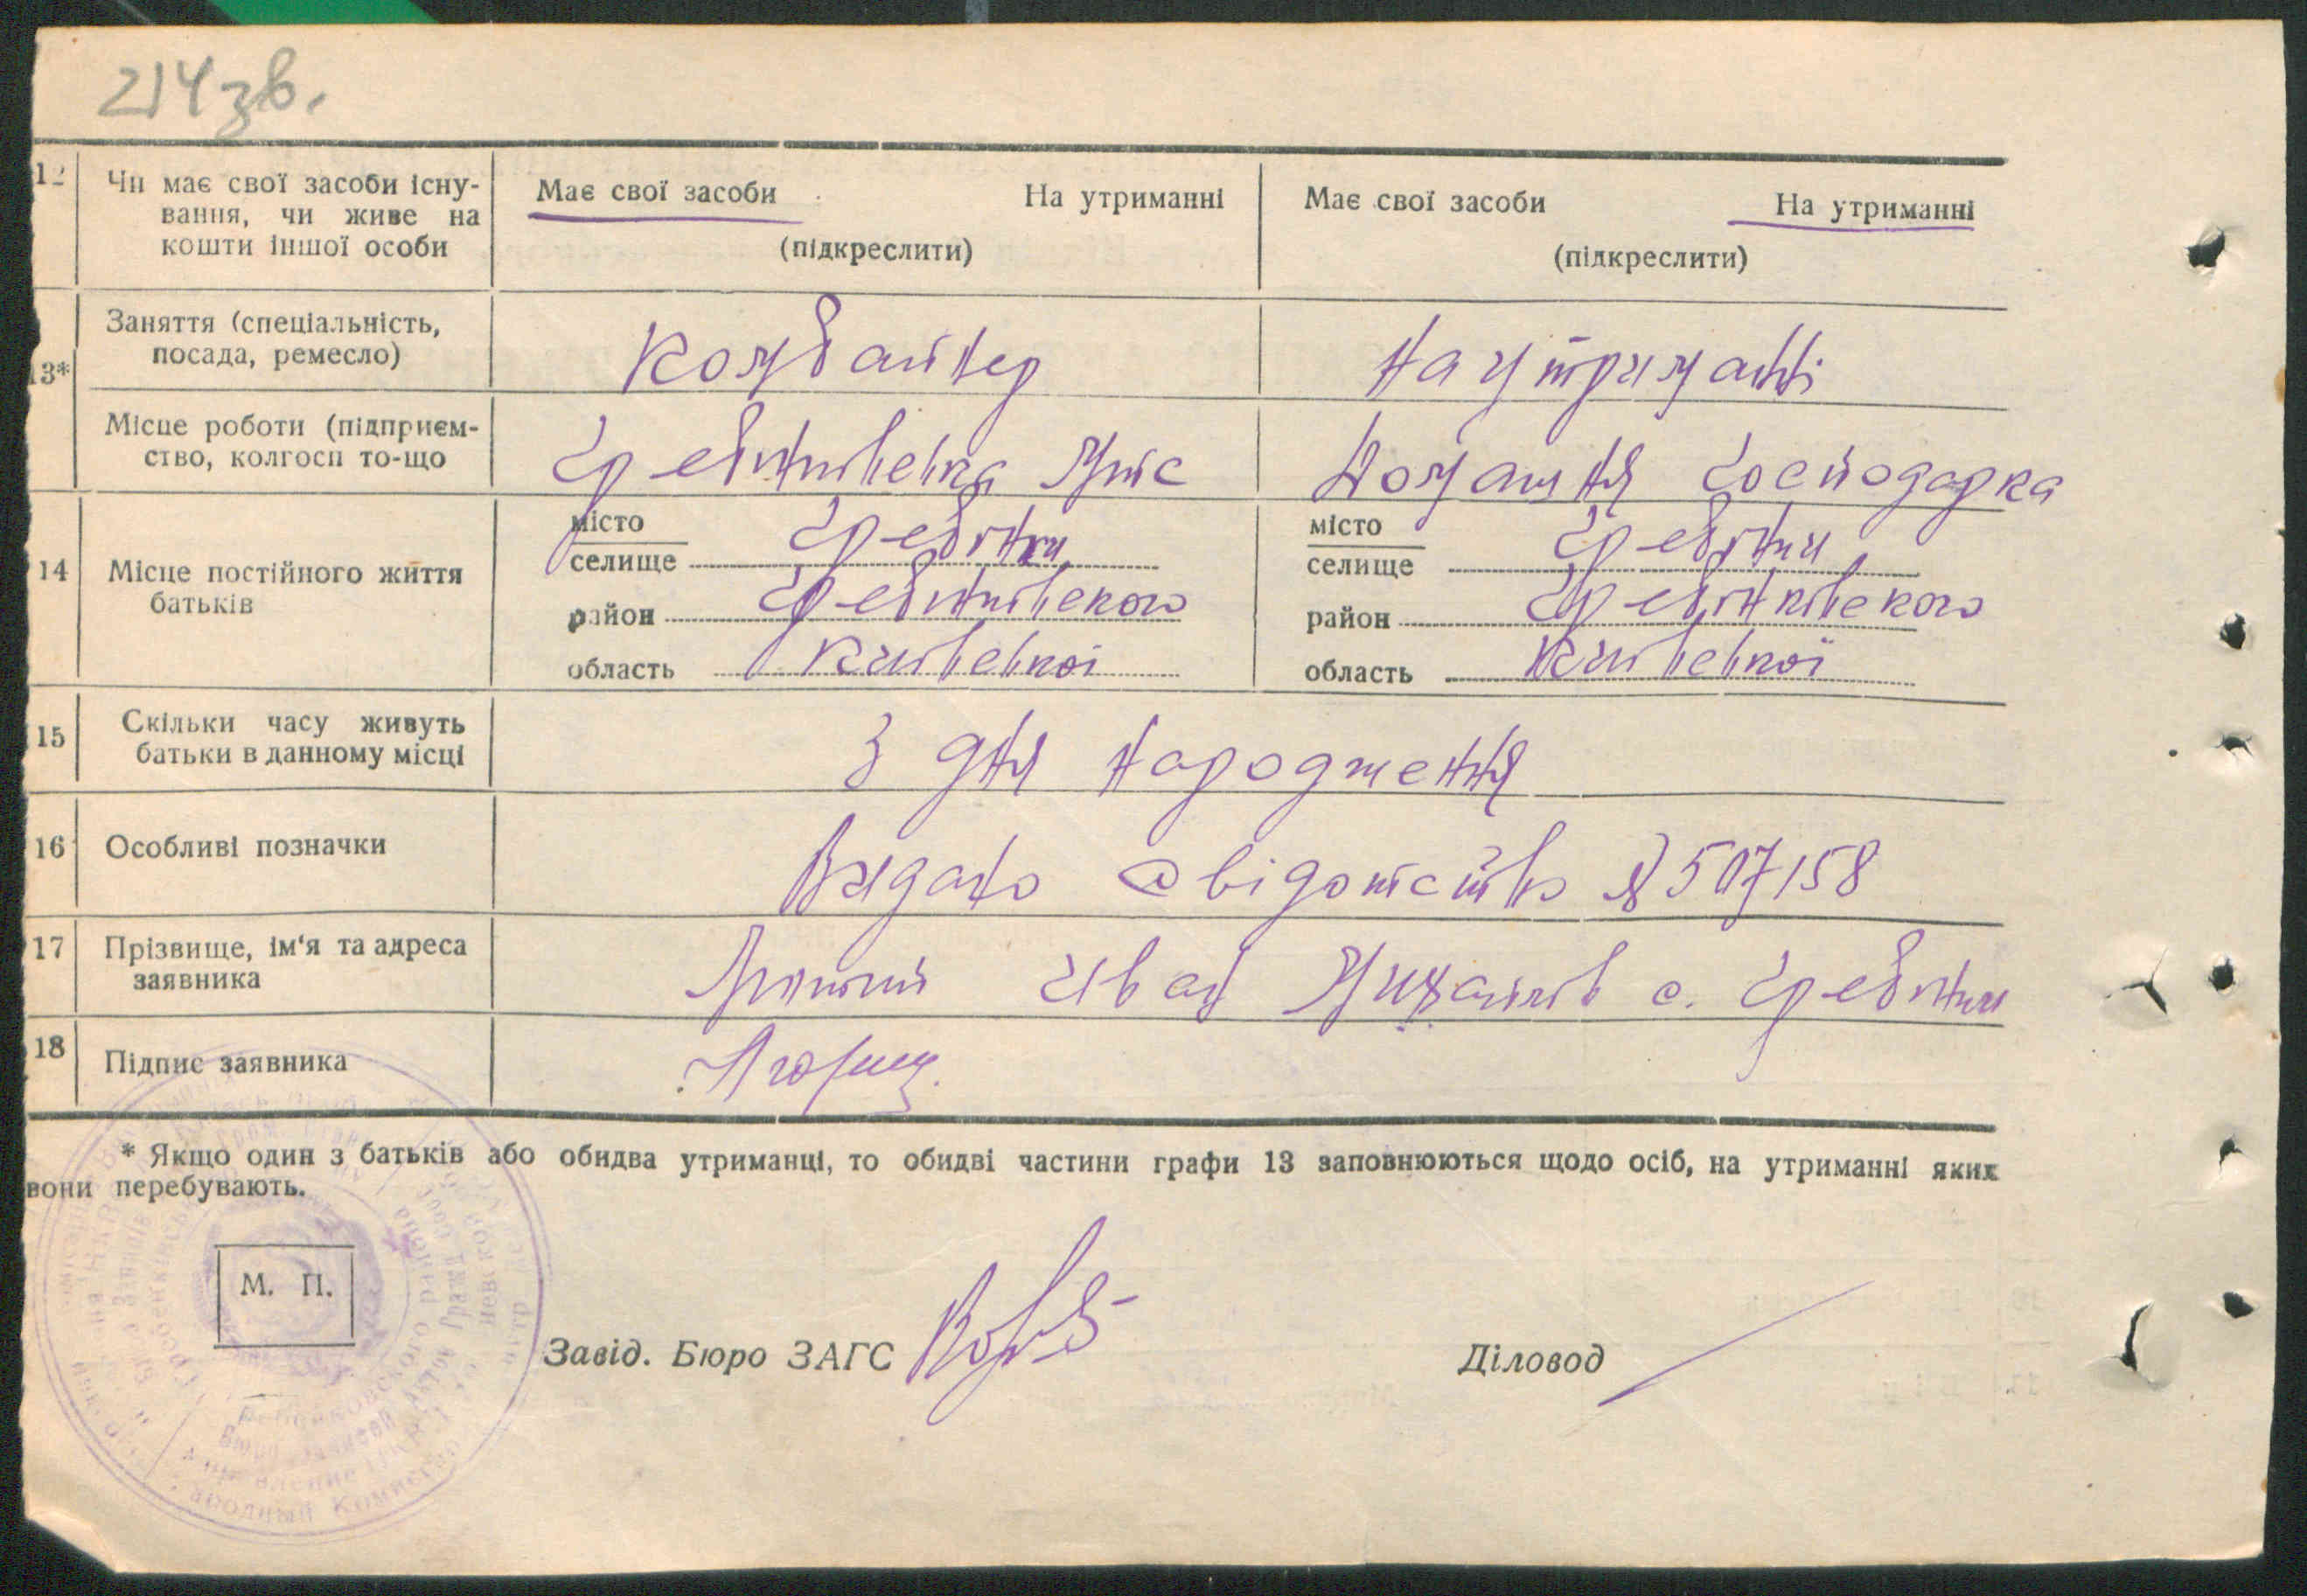 214 зв.
12 Чи має свої засоби існування, чи живе на кошти іншої особи
Має свої засоби На утриманні
(підкреслити)
Має свої засоби На утриманні
(підкреслити)
13*
Заняття (спеціальність,
посада, ремесло)
Комбайнер
На утриманні
Місце роботи (підприєм-
ство, колгосп то-що
Гребінківська Мтс
Домашня господарка
14 Місце постійного життя
батьків
місто
селище Гребінки
район Гребінківського
область Київської
місто
селище Гребінки
район Гребінківського
область Київської
15 Скільки часу живуть
батьки в данному місці
З дня народження
16 Особливі позначки
Видано свідотство № 507158
17 Прізвище, ім'я та адреса
заявника
Іван с. Гребінки
18 Підпис заявника
* Якщо один з батьків або обидва утриманці, то обидві частини графи 13 заповнюються щодо осіб, на утриманні яких
вони перебувають.
М. П.
Завід. Бюро ЗАГС
Діловод